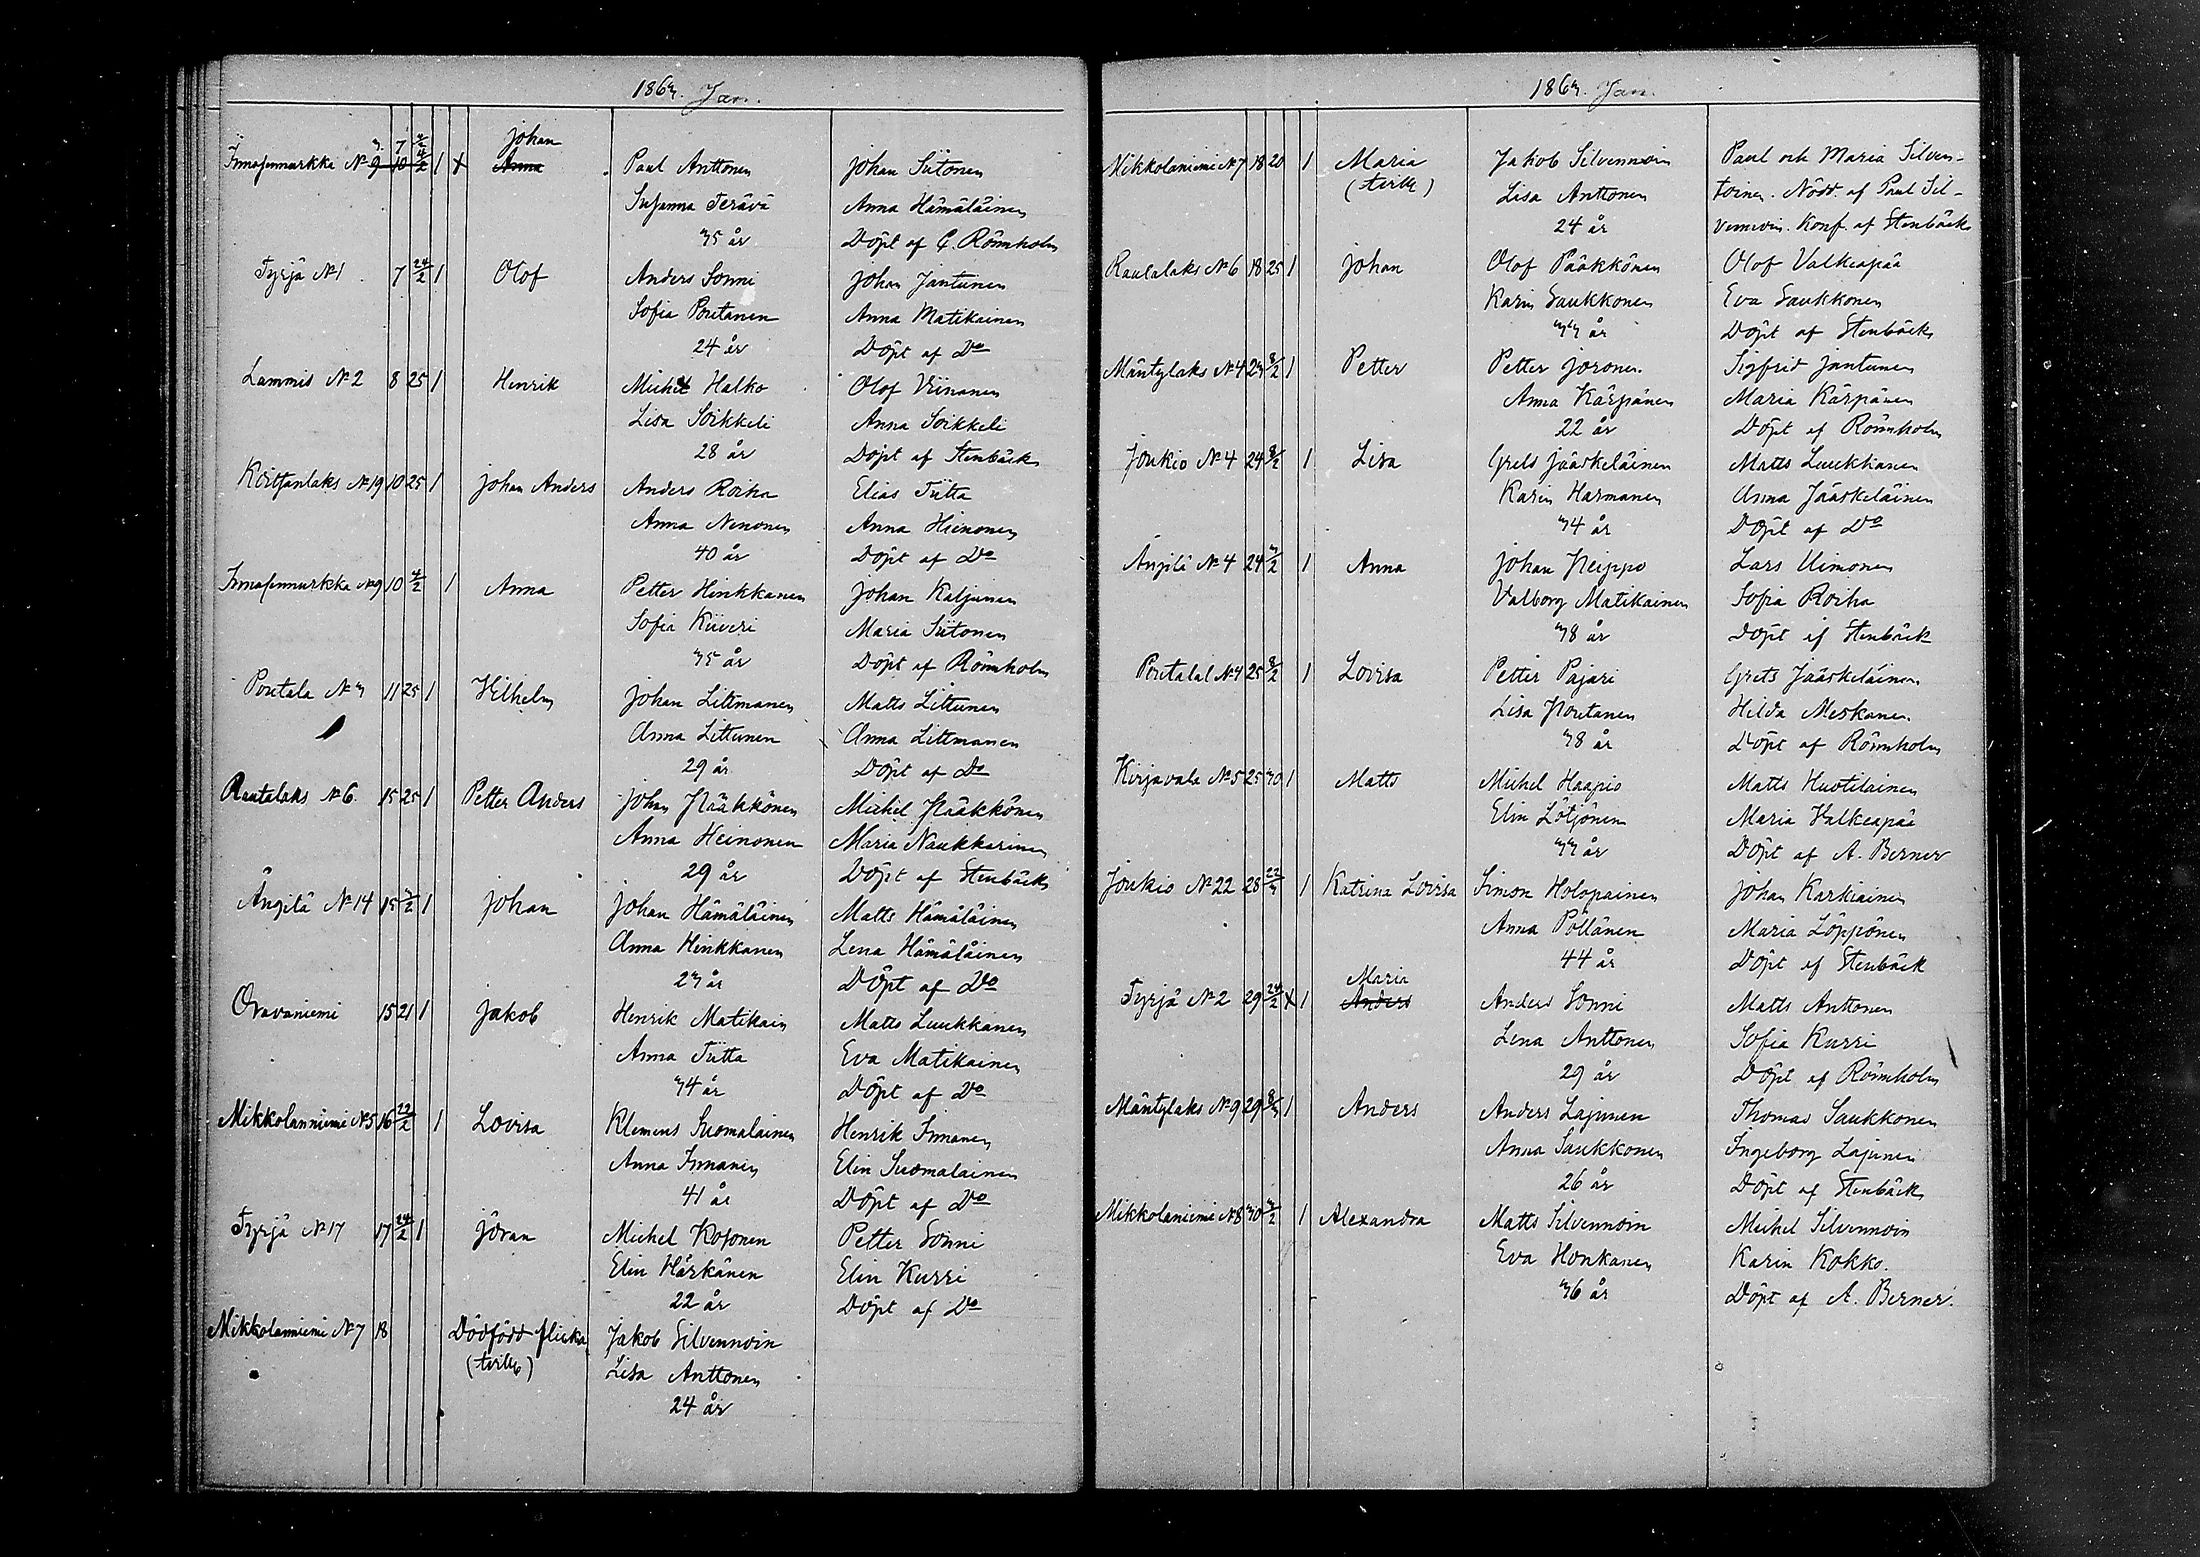 1863. Jan.
Johan
Imasenmurkka № 9 10 4/2 1 x Anna Paul Anttonen Johan Siitonen
3. 7 4/2
Susanna Terävä Anna Hämäläinen
35 år Döpt af G. Römnholm
Tyrjä №1 7 24/2 1 Olof Anders Sonni Johan Jantunen
Sofia Poutanen Anna Matikainen
24 år Döpt af Do
Lammis №2 8 25 1 Henrik Michel Halko Olof Viinanen
Lisa Soikkeli Anna Soikkeli
28 år Döpt af Stenbäck
Koitsanlaks №19 10 25 1 Johan Anders Anders Roiha Elias Tiitta
Anna Nenonen Anna Hienonen
40 år Döpt af Do
Imasenmurkka №9 10 4/2 1 Anna Petter Hinkkanen Johan Kaljunen
Sofia Kiiveri Maria Siitonen
35 år Döpt af Römnholm
Poutala №3 11 25 1 Vilhelm Johan Littmanen Matts Littunen
Anna Littunen Anna Littmanen
29 år Döpt af Do
Rautalaks №6 15 25 1 Petter Anders Johan Pääkkönen Michel Pääkkönen
Anna Heinonen Maria Naukkarinen
29 år Döpt af Stenbäck
Ängilä №14 15 3/2 1 Johan Johan Hämäläinen Matts Hämäläinen
Anna Hinkkanen Lena Hämäläinen
23 år Döpt af Do
Oravaniemi 15 21 1 Jakob Henrik Matikain Matts Luukkanen
Anna Tiitta Eva Matikainen
34 år Döpt af Do
Mikkolanniemi №5 16 22/2 1 Lovisa Klemens Suomalainen Henrik Immanen
Anna Immanen Elin Suomalainen
41 år Döpt af Do
Tyrjä №17 17 24/2 1 Jöran Michel Kosonen Petter Sonni
Elin Härkänen Elin Kurri
22 år Döpt af Do
Mikkolanniemi №7 18 Dödfödd flicka Jakob Silvennoin
(tvill) Lisa Anttonen
24 år
1863. Jan.
Mikkolaniemi №7 18 20 1 Maria Jakob Silvennoin Paul och Maria Silven-
(tvill) Lisa Anttonen toinen. Nöd. af Paul Sil-
24 år vennoin. Konf. af Stenbäck
Rautalaks №6 18 25 1 Johan Olof Pääkkönen Olof Valkeapää
Karin Saukkonen Eva Saukkonen
33 år Döpt af Stenbäck
Mäntylaks №4 23 8/2 1 Petter Petter Joronen Sigfrid Jantunen
Anna Kärpänen Maria Kärpänen
22 år Döpt af Römnholm
Joukio №4 24 8/2 1 Lisa Grels Jääskeläinen Matts Luukkanen
Karin Harmanen Anna Jääskeläinen
34 år Döpt af Do
Ängilä №4 24 3/2 1 Anna Johan Neippo Lars Uimonen
Valborg Matikainen Sofia Roiha
38 år Döpt af Stenbäck
Poutalal №4 25 8/2 1 Lovisa Petter Pajari Grels Jääskeläinen
Lisa Poutanen Hilda Meskanen
38 år Döpt af Römnholm
Kirjavala №5 25 30 1 Matts Michel Haapio Matts Huotilainen
Elin Lötjönen Maria Valkeapää
33 år Döpt af A. Berner
Joukio №22 28 22/3 1 Katrina Lovisa Simon Holopainen Johan Karkiainen
Anna Pöllänen Maria Löppönen
44 år Döpt af Stenbäck
Maria
Tyrjä №2 29 24/2 x 1 Anders Anders Sonni Matts Anttonen
Lena Anttonen Sofia Kurri
29 år Döpt af Römnholm
Mäntylaks №9 29 8/3 1 Anders Anders Lajunen Thomas Saukkonen
Anna Saukkonen Ingeborg Lajunen
26 år Döpt af Stenbäck
Mikkolaniemi №8 30 3/2 1 Alexandra Matts Silvennoin Michel Silvennoin
Eva Honkanen Karin Kokko.
36 år Döpt af A. Berner.